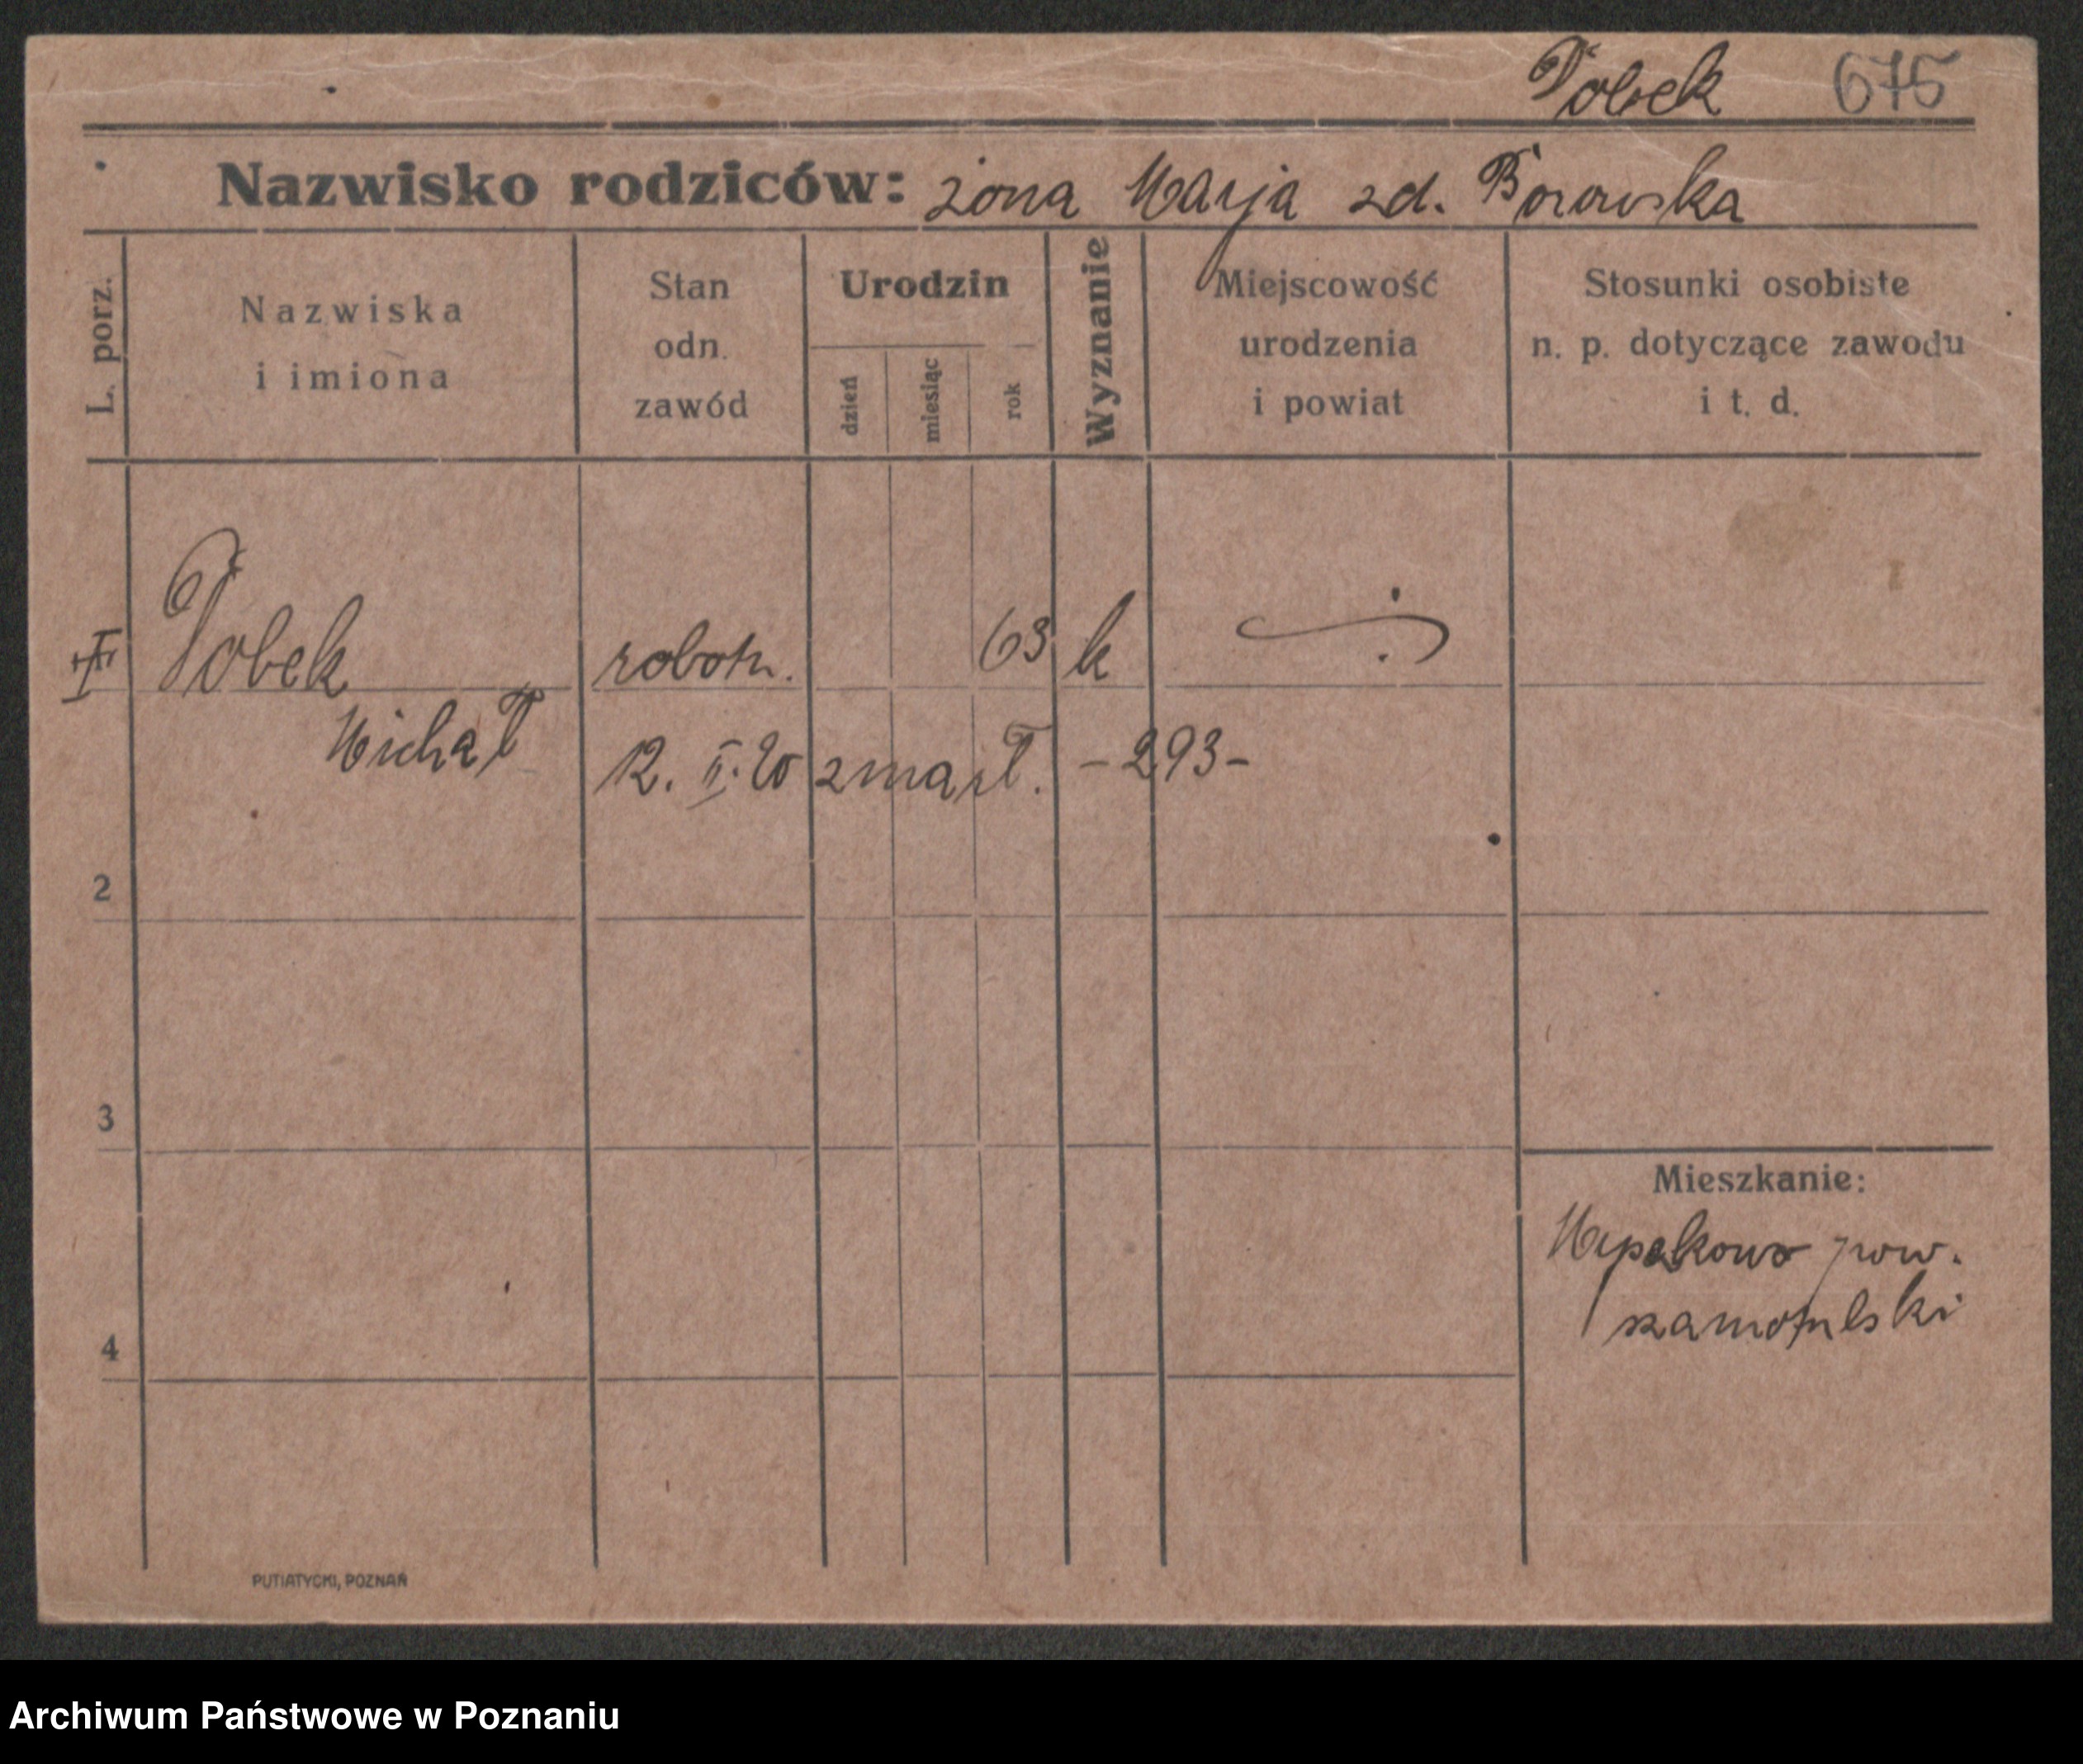 Pobek 675
Nazwisko rodziców: żona Marja zd. Borowska
L. porz.
Nazwiska
i imiona
Stan
odn.
zawód
Urodzin
dzień
miesiąc
rok
Wyznanie
Miejscowość
urodzenia
i powiat
Stosunki osobiste
n. p. dotyczące zawodu
i t. d.
Pobek robotn. 63 k
Michał
12. II. 20 zmarł. -293-
2
3
4
Mieszkanie:
pow.
szamotulski
PUTIATYCKI, POZNAŃ
Archiwum Państwowe w Poznaniu